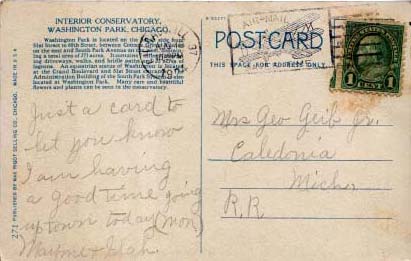 INTERIOR CONSERVATORY,
WASHINGTON PARK, CHICAGO.
Washington Park is located on the South Side, from
51st Street to 60th Street, between Cottage Grove Avenue
on the east and South Park Avenue on the
ing a total area of 371 acres.
ing driveways, walks, and bridle paths and
lagoons. An equestrian statue of Washington is located
at the Grand Boulevard and 51st Street entrance.
Administration Building of the South Park
located at Washington Park. Many rare and beautiful
flowers and plants are exhibited the year
271 PUBLISHED BY MAX RIGOT SELLING CO., CHICAGO.
MADE IN U.S.A.
Just a card to
let you know
I am having
a good time going
uptown today (mon)
Mayme +
AIR-MAIL
POSTCARD
THIS SPACE FOR ADDRESS ONLY.
1 CENT 1
Mrs Geo Geib Jr.
Caledonia
Mich
R.R